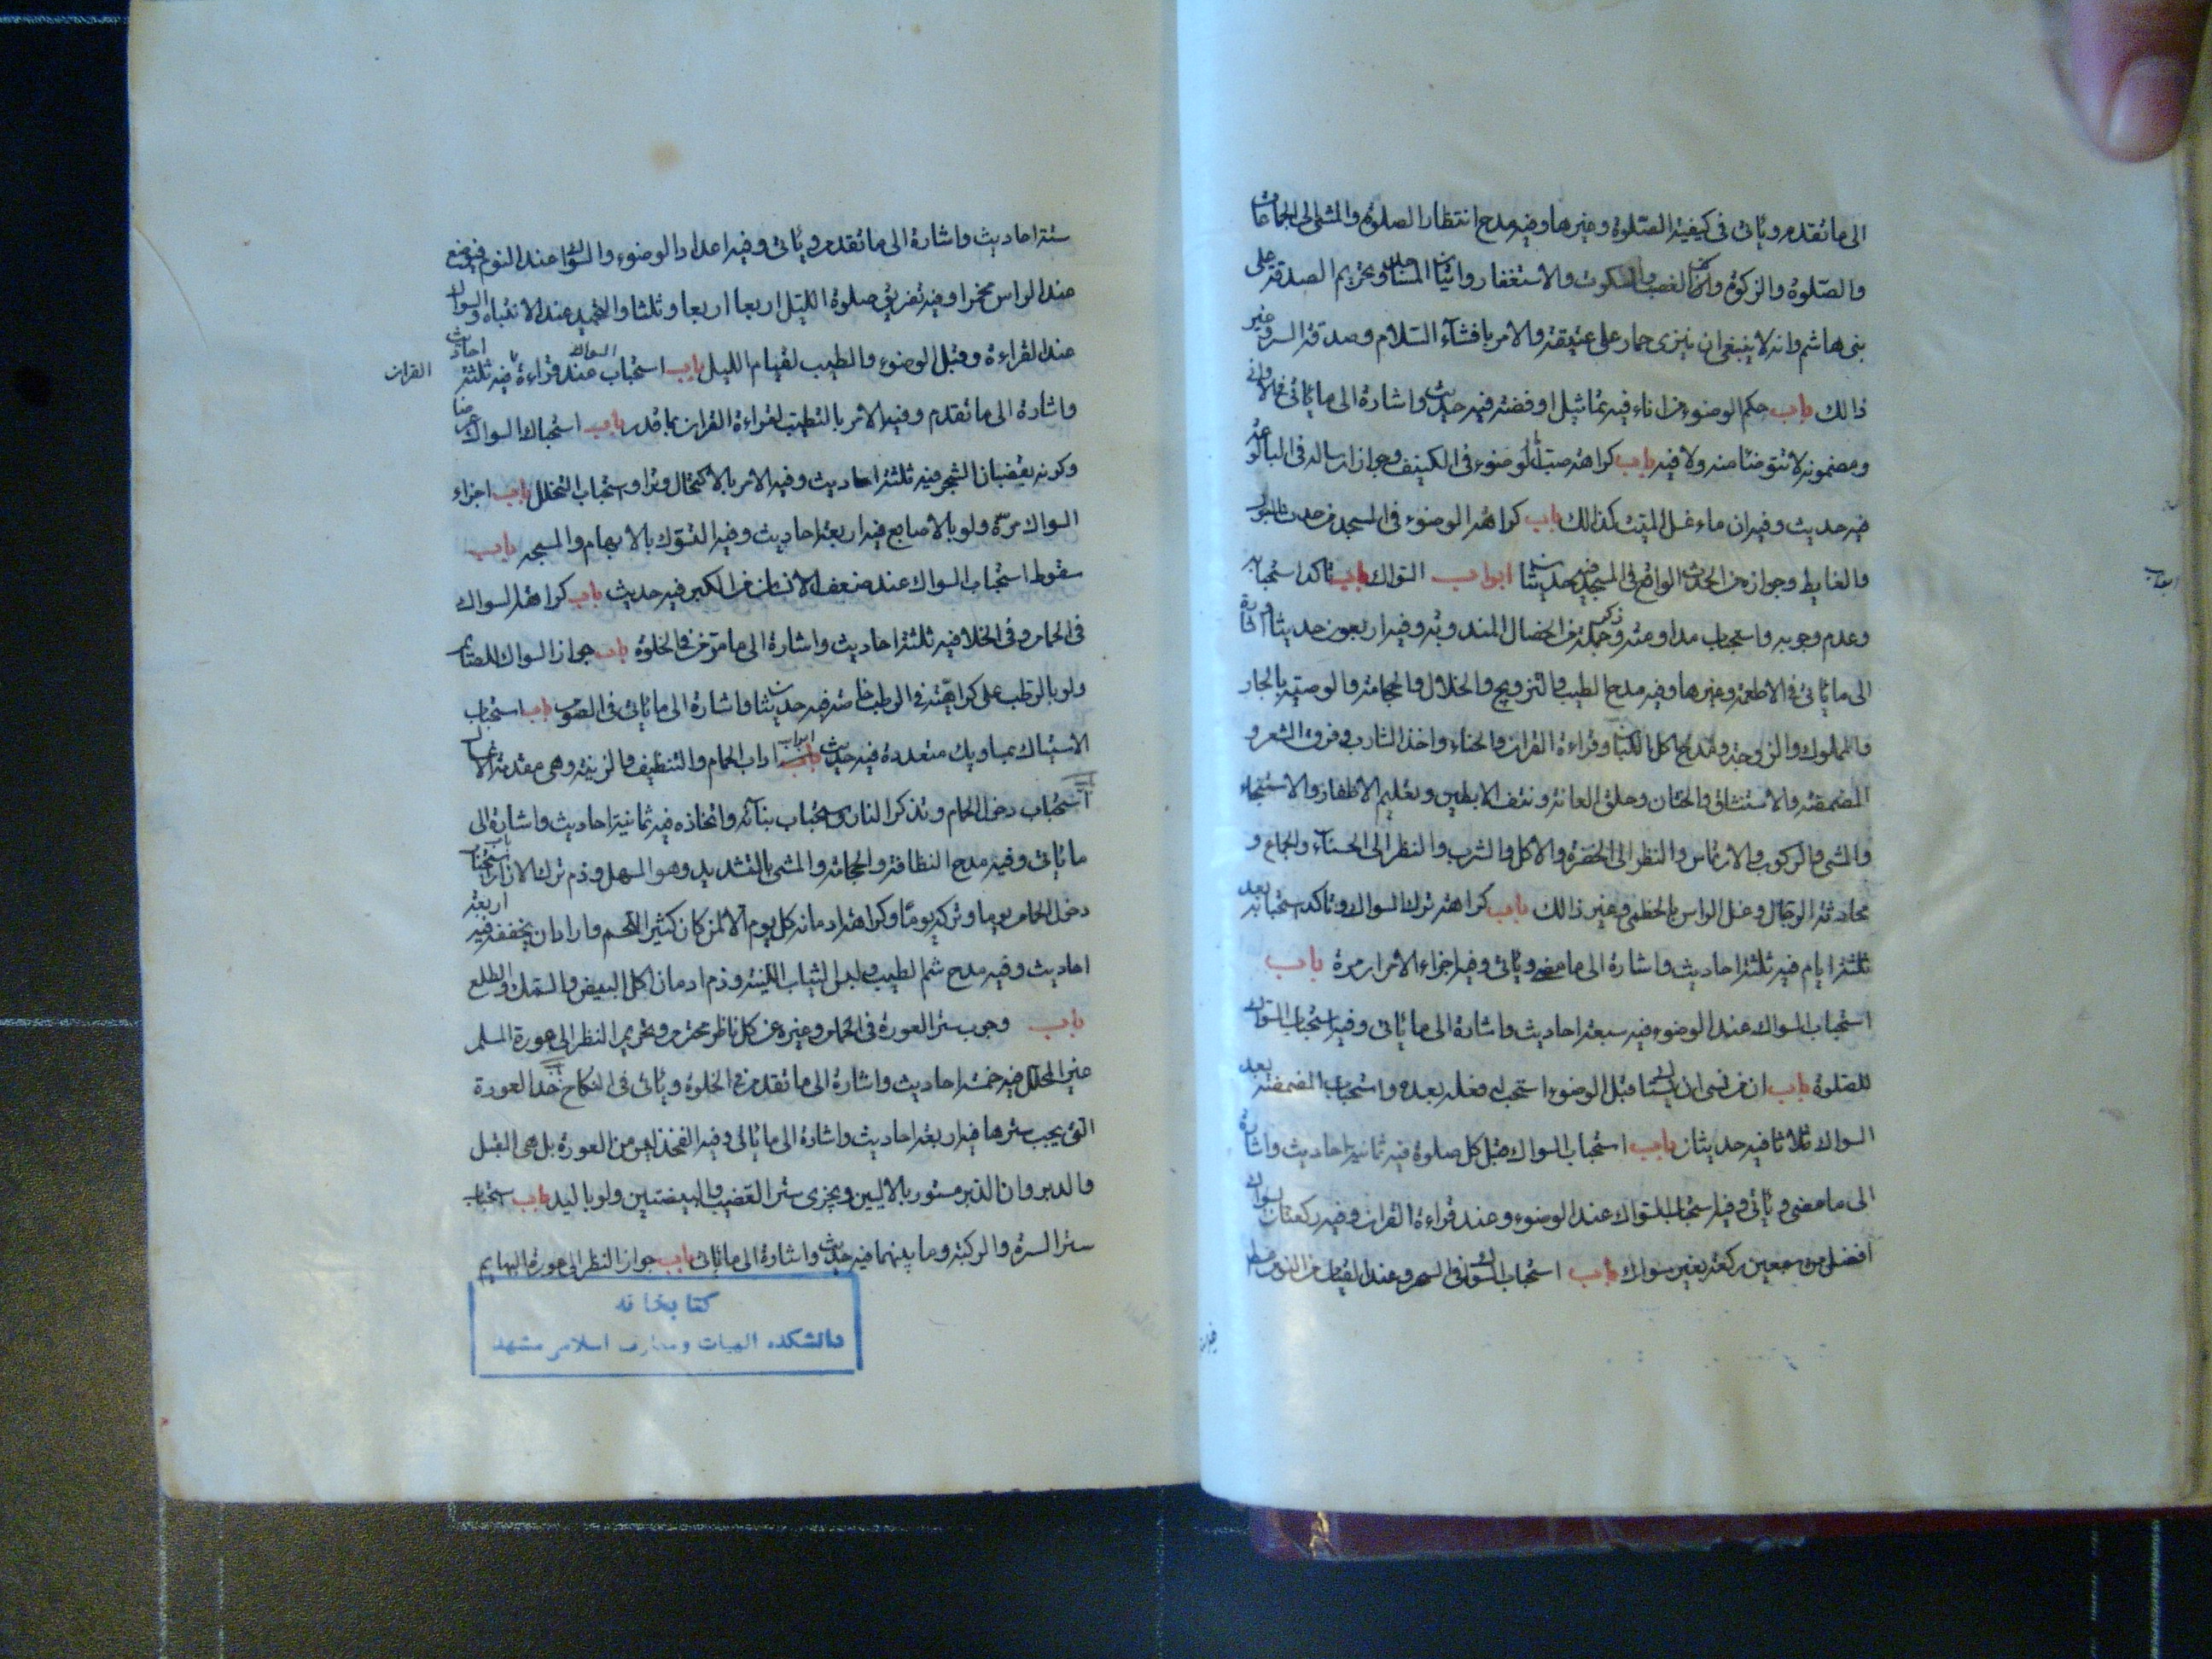 الى ما تقدم ويأتى فى كيفية الصّلوة وغيرها وفيه مدح انتظار الصلوة والمشى الى الجماعات
والصّلوة والزكوة وكف الغضب والسكوت والاستغفار واتيان المساجد وتحريم الصدقة على
بنى هاشم وانه لا ينبغى ان ينزى حمار على عتيقة والامر بافشآء السّلام وصدقة السر وغير
ذالك باب حكم الوضوء من اناء فيه تماثيل او فضة فيه حديث واشارة الى ما يأتى فى الاوانى
ومضمونه لا تتوضأ منه ولا فيه باب كراهة صب ماء الوضوء فى الكنيف وجواز ارساله فى البالوعة
فيه حديث وفيه ان ماء غسل الميّت كذالك باب كراهة الوضوء فى المسجد من حدث البول
والغايط وجوازه من الحدث الواقع فى المسجد فيه حديثان ابواب السّواك باب تاكد استحبابه
وعدم وجوبه واستحباب مداومته وذكر جملة من الخصال المندوبة وفيه اربعون حديثا واشارة
الى ما يأتى فى الاطعمة وغيرها وفيه مدح الطيب والتزويج والخلال والحجامة والوصيّة بالجار
والمملوك والزوجة ومدح اكل اللبان وقراءة القران والحناء واخذ الشارب وفرق الشعر و
المضمضة والاستنشاق والختان وحلق العانة ونتف الابطين وتقليم الاظفار والاستنجاء
والمشى والركوب والارتماس والنظر الى الخضرة والاكل والشرب والنظر الى الحسنآء والجماع و
محادثة الرجال وغسل الراس بالخطمى وغير ذالك باب كراهة ترك السواك وتاكد استحبابه بعد
ثلثة ايام فيه ثلثة احاديث واشارة الى ما مضى ويأتى وفيه اجزاء الامرار مرة باب
استحباب السواك عند الوضوء فيه سبعة احاديث واشارة الى ما يأتى وفيه استحباب السّواك
للصّلوة باب ان من نسى ان يستاك قبل الوضوء استحب له فعله بعده واستحباب المضمضة بعد
السواك ثلاثا فيه حديثان باب استحباب السواك قبل كل صلوة فيه ثمانية احاديث واشارة
الى ما مضى ويأتى وفيه استحباب السّواك عند الوضوء وعند قراءة القران وفيه ركعتان بسواك
افضل من سبعين ركعة بغير سواك باب استحباب السّواك فى السحر وعند القيام من النوم مطلقا فيه
ستة احاديث واشارة الى ما تقدم ويأتى وفيه اعداد الوضوء والسّواك عند النوم فيوضع
عند الراس مخمرا وفيه تفريق صلوة الليل اربعا اربعا وثلثا والتحميد عند الانتباه والسواك
عند القراءة وقبل الوضوء والطيب لقيام الليل باب استحباب السواك عند قراءة القران فيه ثلثة احاديث
واشارة الى ما تقدم وفيه الامر بالتطيب لقراءة القران بما قدر باب استحباب السواك عرضا
وكونه بقضبان الشجر فيه ثلثة احاديث وفيه الامر بالاكتحال وترا واستحباب التخلل باب اجزاء
السواك مرّة ولو بالاصابع فيه اربعة احاديث وفيه التسّوك بالابهام والمسبحه باب
سقوط استحباب السواك عند ضعف الاسنان من الكبر فيه حديث باب كراهة السواك
فى الحمام وفى الخلا فيه ثلثة احاديث واشارة الى ما مرّ فى الخلوة باب جواز السواك للصّايم
ولو بالرّطب على كراهيّة فى الرطب خاصة فيه حديثان واشارة الى ما يأتى فى الصّوم باب استحباب
الاستياك بمساويك متعددة فيه حديث ابواب اداب الحمام والتنظيف والزينة وهى مقدمة الاغسال
باب استحباب دخول الحمام وتذكر النار واستحباب بنآئه واتخاذه فيه ثمانية احاديث واشارة الى
ما يأتى وفيه مدح النظافة والحجامة والمشى بالتشديد وهو المسهل وذم ترك الازار باب استحباب
دخول الحمام يوما وتركه يومًا وكراهة ادمانه كل يوم الا لمن كان كثير اللّحم واراد ان يخففه فيه اربعة
احاديث وفيه مدح شم الطيب ولبس الثياب اللّينة وذم ادمان اكل البيض والسّمك والطلع
باب وجوب ستر العورة فى الحمام وغيره عن كل ناظر محترم وتحريم النظر الى عورة المسلم
غير المحلل فيه خمسة احاديث واشارة الى ما تقدم فى الخلوة ويأتى فى النكاح باب حد العورة
التى يجب سترها فيه اربعة احاديث واشارة الى ما يأتى وفيه الفخذ ليس من العورة بل هى القبل
والدبر وان الدبر مستور بالاليين ويجزى ستر القضيب والبيضتين ولو باليد باب استحباب
ستر السرة والركبة وما بينهما فيه حديث واشارة الى ما يأتى باب جواز النظر الى عورة البهايم
كتابخانه
دانشكده الهيات ومعارف اسلامى مشهد